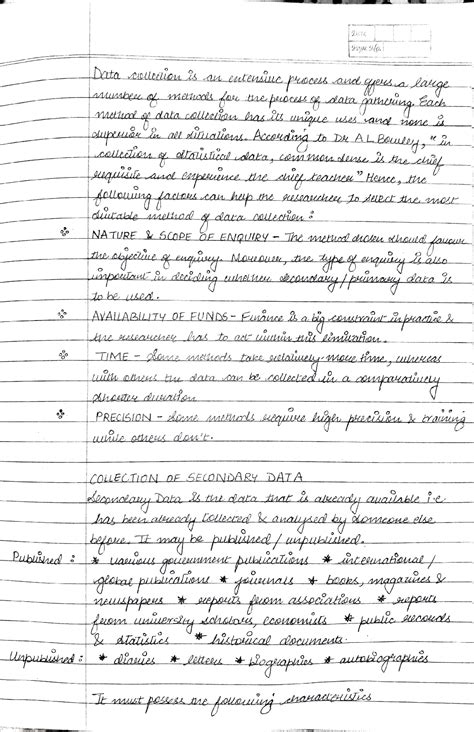 Data collection is an extensive process and offers a large
number of methods for the process of data gathering. Each
method of data collection has its unique uses and none is
superior in all situations. According to Dr A L Bowley, "in
collection of statistical data, common sense is the chief
requisite and experience the chief teacher" Hence, the
following factors can help the researcher to select the most
suitable method of data collection:
NATURE & SCOPE OF ENQUIRY - The method chosen should favour
the objective of enquiry. Moreover, the type of enquiry is also
important in deciding whether secondary / primary data is
to be used.
AVAILABILITY OF FUNDS - Finance is a big constraint in practice &
the researcher has to act within this limitation.
TIME - Some methods take relatively more time, whereas
with others the data can be collected in a comparatively
shorter duration
PRECISION - Some methods require high precision & training
while others don't.
COLLECTION OF SECONDARY DATA
Secondary Data is the data that is already available i.e
has been already collected & analysed by someone else
before. It may be published / unpublished.
Published : * various government publications * international /
global publications * journals * books, magazines &
newspapers * reports from associations * reports
from university scholars, economists * public records
& statistics * historical documents.
Unpublished : * diaries * letters * biographies * autobiographies
It must possess the following characteristics